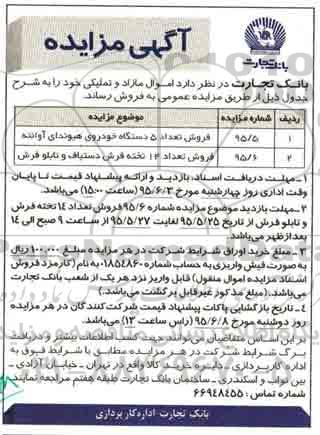 بانک تجارت
آگهی مزایده
بانک تجارت در نظر دارد اموال مازاد و تملیکی خود را به شرح
جدول ذیل از طریق مزایده عمومی به فروش رساند.
ردیف شماره مزایده موضوع مزایده
۱ ۹۵/۵ فروش تعداد ۵ دستگاه خودروی هیوندای آوانته
۲ ۹۵/۶ فروش تعداد ۱۴ تخته فرش دستباف و تابلو فرش
۱- مهلت دریافت اسناد، بازدید و ارائه پیشنهاد قیمت تا پایان
وقت اداری روز چهارشنبه مورخ ۹۵/۶/۳ (ساعت ۱۵:۰۰) می‌باشد.
۲- مهلت بازدید موضوع مزایده شماره ۹۵/۶ فروش تعداد ۱۴ تخته فرش
و تابلو فرش از تاریخ ۹۵/۵/۲۵ لغایت ۹۵/۵/۲۷ از ساعت ۹ صبح الی ۱۴
بعد از ظهر می‌باشد.
۳- مبلغ خرید اوراق شرایط شرکت در هر مزایده مبلغ ۱۰۰،۰۰۰ ریال
به صورت فیش واریزی به حساب شماره ۰۱۸۵۴۸۶۰ به نام (کارمزد فروش
اسناد مزایده اموال منقول) قابل واریز نزد هر یک از شعب بانک تجارت
می‌باشد. (مبلغ مذکور غیر قابل برگشت می‌باشد.)
۴- تاریخ بازگشایی پاکات پیشنهاد قیمت شرکت کنندگان در هر مزایده
روز دوشنبه مورخ ۹۵/۶/۸ (راس ساعت ۱۳) می‌باشد.
بر این اساس متقاضیان می‌توانند جهت کسب اطلاعات بیشتر و دریافت
برگ شرایط شرکت در هر مزایده مطابق با شرایط فوق به
اداره کارپردازی - دایره خرید کالا واقع در تهران - خیابان آزادی -
بین نواب و اسکندری - ساختمان بانک تجارت طبقه هفتم مراجعه نمایند.
شماره تماس: ۶۶۹۴۸۴۵۵
بانک تجارت - اداره کارپردازی